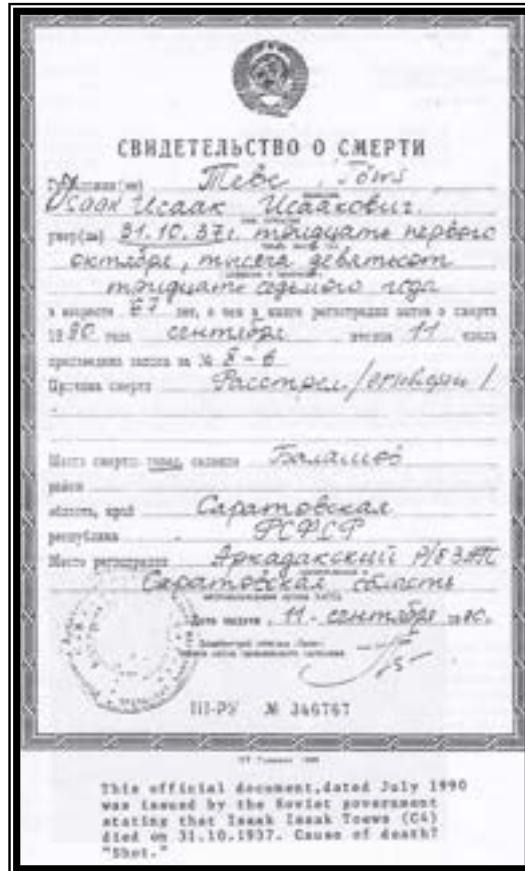 СВИДЕТЕЛЬСТВО О СМЕРТИ
Тевс, Töws
Исаак Исаакович.
умер(ла) 31.10.37г. тридцать первого
октября, тысяча девятьсот
тридцать седьмого года
в возрасте 67 лет, о чем в книге регистрации актов о смерти
года сентября месяца 11 числа
произведена запись за № 8-в
Причина смерти Расстрел
Место смерти: город, селение Балашов
район
область, край Саратовская
республика РСФСР
Место регистрации Аркадакский ЗАГС
Саратовская область
Дата выдачи 11 сентября
III-РУ № 346767
This official document, dated July 1990
was issued by the Soviet government
stating that Isaak Isaak Toews (C4)
died on 31.10.1937. Cause of death?
"Shot."